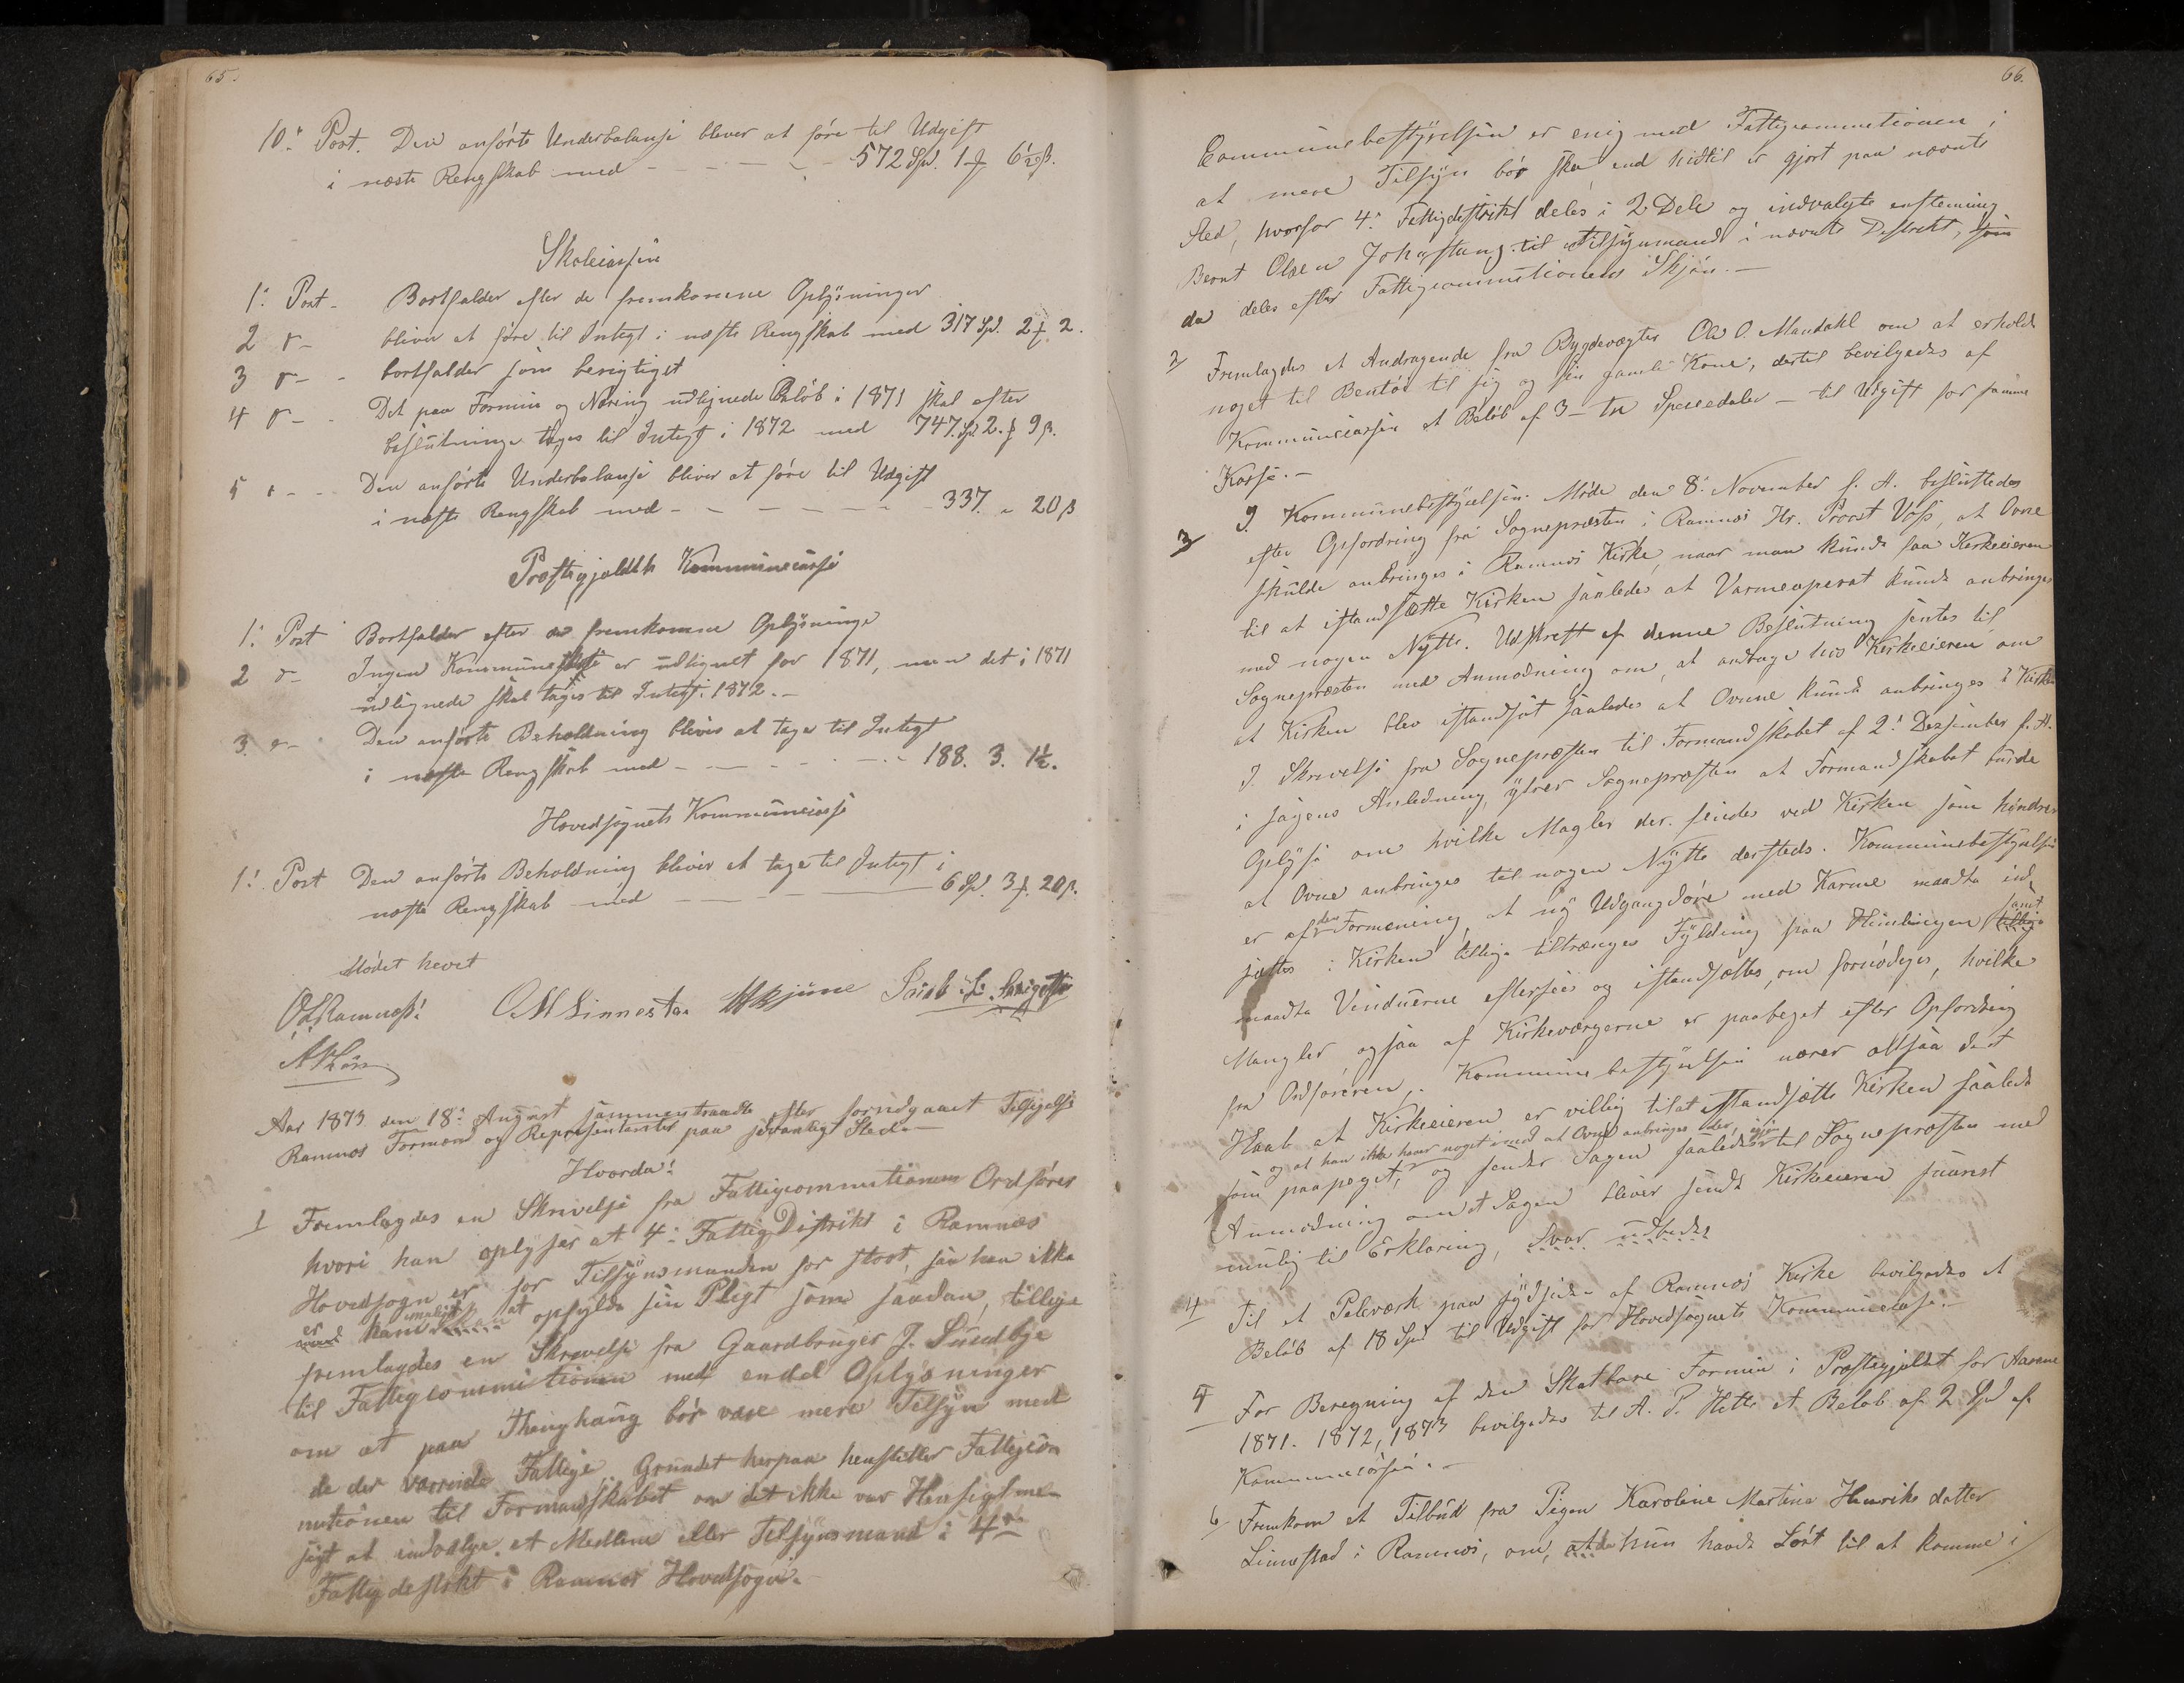 65.
10de Post. Den anførte Underbalanse bliver at føre til Udgift
i næste Regnskab med - - - - 572 Spd. 1 ƒ 6½ ß.
Skolecassen
1ste Post - Bortfalder efter de fremkomne Oplysninger
2 d- bliver at føre til Indtægt i næste Rengskab med 317 Spd. 2 ƒ. 2.
3 d- - bortfalder som berigtiget
4 d- - Det paa Formue og Næring udlignede Beløb i 1871 skal efter
beslutninge tages til Indtægt i 1872 med 747 Sp. 2. ƒ 9 ß.
5 d- - Den anførte Underbalanse bliver at føre til Udgift
i næste Rengskab med - - - - - - 337. " 20 ß
Præstegjeldets Kommunecasse
1ste Post Bortfalder efter de fremkomne Oplysninge
2 d- Ingen Kommuneskat er udlignet for 1871, men det i 1871
udlignede skal tages til Indtægt i 1872. -
3. d- Den anførte Beholdning bliver at tage til Indtægt
i næste Rengskab med - - - - - 188. 3. 1½.
Hovedsognets Kommunecasse
1ste Post Den anførte Beholdning bliver at tage til Indtægt i
næste Rengskab med - - - 6 Spd. 3 ƒ. 20 ß.
Mødet hevet
O. Ramnæs! O M Linnestad
Aar 1873 den 18de August sammentraadte efter forudgaaet Tilsigelse
Ramnæs Formænd og Repræsentanter paa sædvanligt Sted. -
Hvorda!
1 Fremlagdes en Skrivelse fra Fattigcommitionens Ordfører
hvori han oplyser at 4de Fattig Distrikt i Ramnæs
Hovedsogn er for Tilsynsmanden for stort, saa han ikke
er ham muligt at opfylde sin Pligt som saadan, tillige
fremlagdes en Skrivelse fra Gaardbruger J. Sundbye
til Fattigcommitionen med endel Oplysninger
om at paa Thenghaug bør være mere Tilsyn med
de der værende Fattige Grundet herpaa henstiller Fattigcom
mitionen til Formandskabet om det ikke var Hensigtme-
sigt at indvælge et Medlem eller Tilsynsmand i 4de
Fattigdistrikt i Ramnæs Hovedsogn. -
66.
Communebestyrelsen er enig med Fattigcommitionen i
at mere Tilsyn bør ske end hidtil er gjort paa nævnte
Sted, hvorfor 4de Fattigdistrikt deles i 2 Dele og indvalgte enstemmig
Bernt Olsen til Tilsynsmand i nævnte Distrikt, som
da deles efter Fattigcommitionens Skjøn. -
2 Fremlagdes et Andragende fra Bygdevægter Ole O. Mandahl om at erholde
noget til Bentøi til sig og sin gamle Kone, dertil bevilgedes af
Kommunecassen et Beløb af 3 - tre Speciedaler - til Udgift for samme
Kasse. -
3 I Kommunebestyrelsen Møde den 8de November f. A. besluttedes
efter Opfordring fra Sognepræsten i Ramnæs Hr. Provst Voss, at Ovne
skulde anbringes i Ramnæs Kirke, naar man kunde faa Kirkeeieren
til at istandsætte Kirken saaledes at Varmeaperat kunde anbringes
med nogen Nytte. Udskreft af denne Beslutning sentes til
Sognepræsten med Anmodning om, at andrage hos Kirkeeieren om
at Kirken blev istandsat saaledes at Ovnene kunde anbringes i Kirken
I Skrivelse fra Sognepræsten til Formandskabet af 2de Desember f. A.
i sagens Anledning, ytrer Sognepræsten at Formandskabet burde
Oplyse om hvilke Magler der findes ved Kirken som hindrer
at Ovne anbringes til nogen Nytte dersteds. Kommunebestyrelsen
er af den Formening, at ny Udgangdøre med Karme maadte ind-
sættes i Kirken tillige tiltrænges Fylding paa Himlingen samt tillige
maadte Vinduerne eftersees og istandsættes, om fornødeges, hvilke
Mangler ogsaa af Kirkeværgerne er paabeget efter Opfordring
fra Ordføreren. Kommunebestyrelsen nærer altsaa det
Haab at Kirkeeieren er villig til at istandsætte Kirken saaledes
og at han ikke haver noget imod at Ovne anbringes der,
som paapeget, og sender Sagen saaledes til Sognepræsten med
Anmodning om at Sagen bliver sendt Kirkeeieren snarest
mulig til Erklæring, Svar udbedes
4 Til et Peleværk paa sydsiden af Ramnæs Kirke bevilgedes et
Beløb af 18 Spd til Udgift for Hovedsognets Kommunekasse. -
5 For Beregning af den Skatbare Formue i Præstegjeldet for Aarene
1871. 1872, 1873 bevilgedes til A. P. Hette et Beløb af 2 Spd af
Kommunecassen. -
6 Fremkom et Tilbud fra Pigen Karoline Martine Henriksdatter
Linnestad i Ramnæs, om, at da hun havde Løst til at komme i